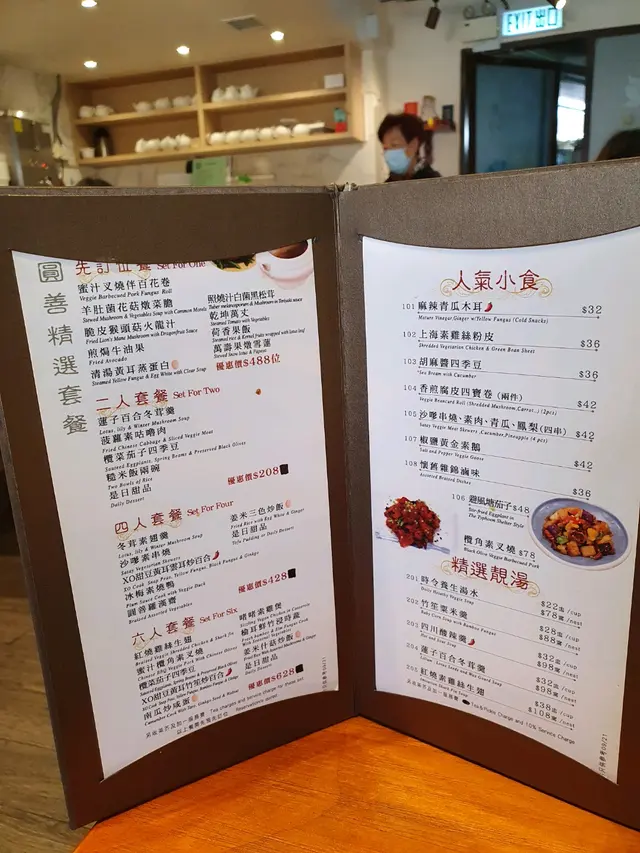 EXIT 出口
圓善精選套餐
Set For One
蜜汁叉燒伴百花卷
Veggie Barbecued Pork Fungus Roll
羊肚菌花菇燉菜膽
脆皮猴頭菇火龍汁
煎焗牛油果
Fried Avocado
清湯黃耳蒸蛋白
Steamed Yellow Fungus & Egg White with Clear Soup
照燒汁白菌黑松茸
乾坤萬丈
Steamed Tomato with Vegetables
荷香果飯
萬壽果燉雪蓮
優惠價$488位
二人套餐 Set For Two
蓮子百合冬茸羹
Lotus, lily & Winter Mushroom Soup
菠蘿素咕嚕肉
Fried Chinese Cabbage & Sliced Veggie Meat
欖菜茄子四季豆
Sauteed Eggplants, Spring Beans & Preserved Black Olives
糙米飯兩碗
Two Bowls of Rice
是日甜品
Daily Dessert
優惠價$208
四人套餐 Set For Four
冬茸素翅羹
Lotus, lily & Winter Mushroom Soup
沙嗲素串燒
Satay Vegetarian Skewers
XO甜豆黃耳雲耳炒百合
冰梅素燒鴨
Plum Sauce Cook with Veggie Duck
圓善羅漢齋
Braised Assorted Vegetables
姜米三色炒飯
Fried Rice with Egg White & Ginger
是日甜品
Tofu Pudding or Daily Dessert
優惠價$428
六人套餐 Set For Six
紅燒雞絲生翅
Braised Veggie Shredded Chicken & Shark Fin
蜜汁欖角素叉燒
欖菜茄子四季豆
XO甜豆黃耳竹笙炒百合
南瓜炒咸蛋
啫啫素雞煲
榆耳鮮竹浸時蔬
姜米什菇炒飯
是日甜品
Daily Dessert
優惠價$628
人氣小食
101 麻辣青瓜木耳 $32
Mature Vinegar Ginger w/Yellow Fungus (Cold Snacks)
102 上海素雞絲粉皮 $36
Shredded Vegetarian Chicken & Green Bean Sheet
103 胡麻醬四季豆 $36
Sea Bream with Cucumber
104 香煎腐皮四寶卷 (兩件) $42
Veggie Beancurd Roll (Shredded Mushroom, Carrot..) (2pcs)
105 沙嗲串燒、素肉、青瓜、鳳梨(四串) $42
Satay Veggie Meat Skewers, Cucumber, Pineapple (4 pcs)
107 椒鹽黃金素鵝 $42
Salt and Pepper Veggie Goose
108 懷舊雜錦滷味 $36
Assorted Braised Dishes
106 避風塘茄子 $48
Stir-fried Eggplant in
The Typhoon Shelter Style
欖角素叉燒 $78
Black Olive Veggie Barbecued Pork
精選靚湯
201 時令養生湯水 $22盅/cup
Daily Healthy Veggie Soup $78窩/nest
202 竹笙粟米羹 $28盅/cup
Baby Corn Soup with Bamboo Fungus $88窩/nest
203 四川酸辣羹 $32盅/cup
Hot and Sour Soup $98窩/nest
204 蓮子百合冬茸羹 $32盅/cup
$98窩/nest
205 紅燒素雞絲生翅 $38盅/cup
$108窩/nest
Tea&Pickle Charge and 10% Service Charge